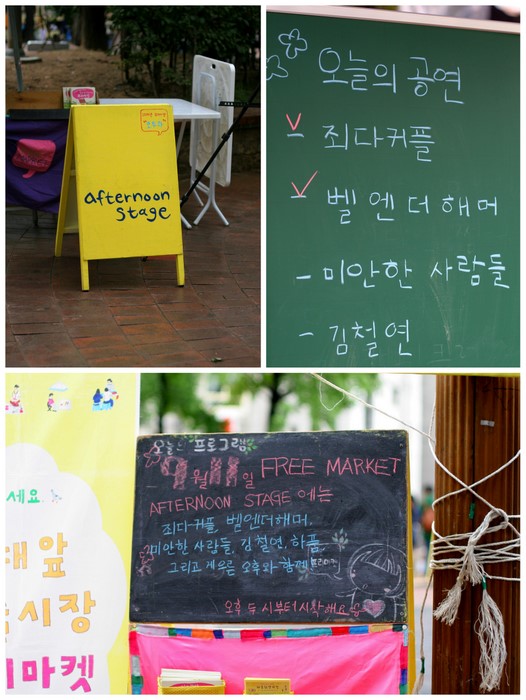 afternoon
stage
오늘의 공연
죄다커플
벨 엔 더 해머
- 미안한 사람들
- 김철연
세요.
대앞
시장
마켓
오늘의 프로그램
9월 11일 FREE MARKET
AFTERNOON STAGE 에는
죄다커플, 벨엔더해머,
미안한 사람들, 김철연, 하품,
그리고 게으른 오후와 함께
오후 두 시부터 시작해요